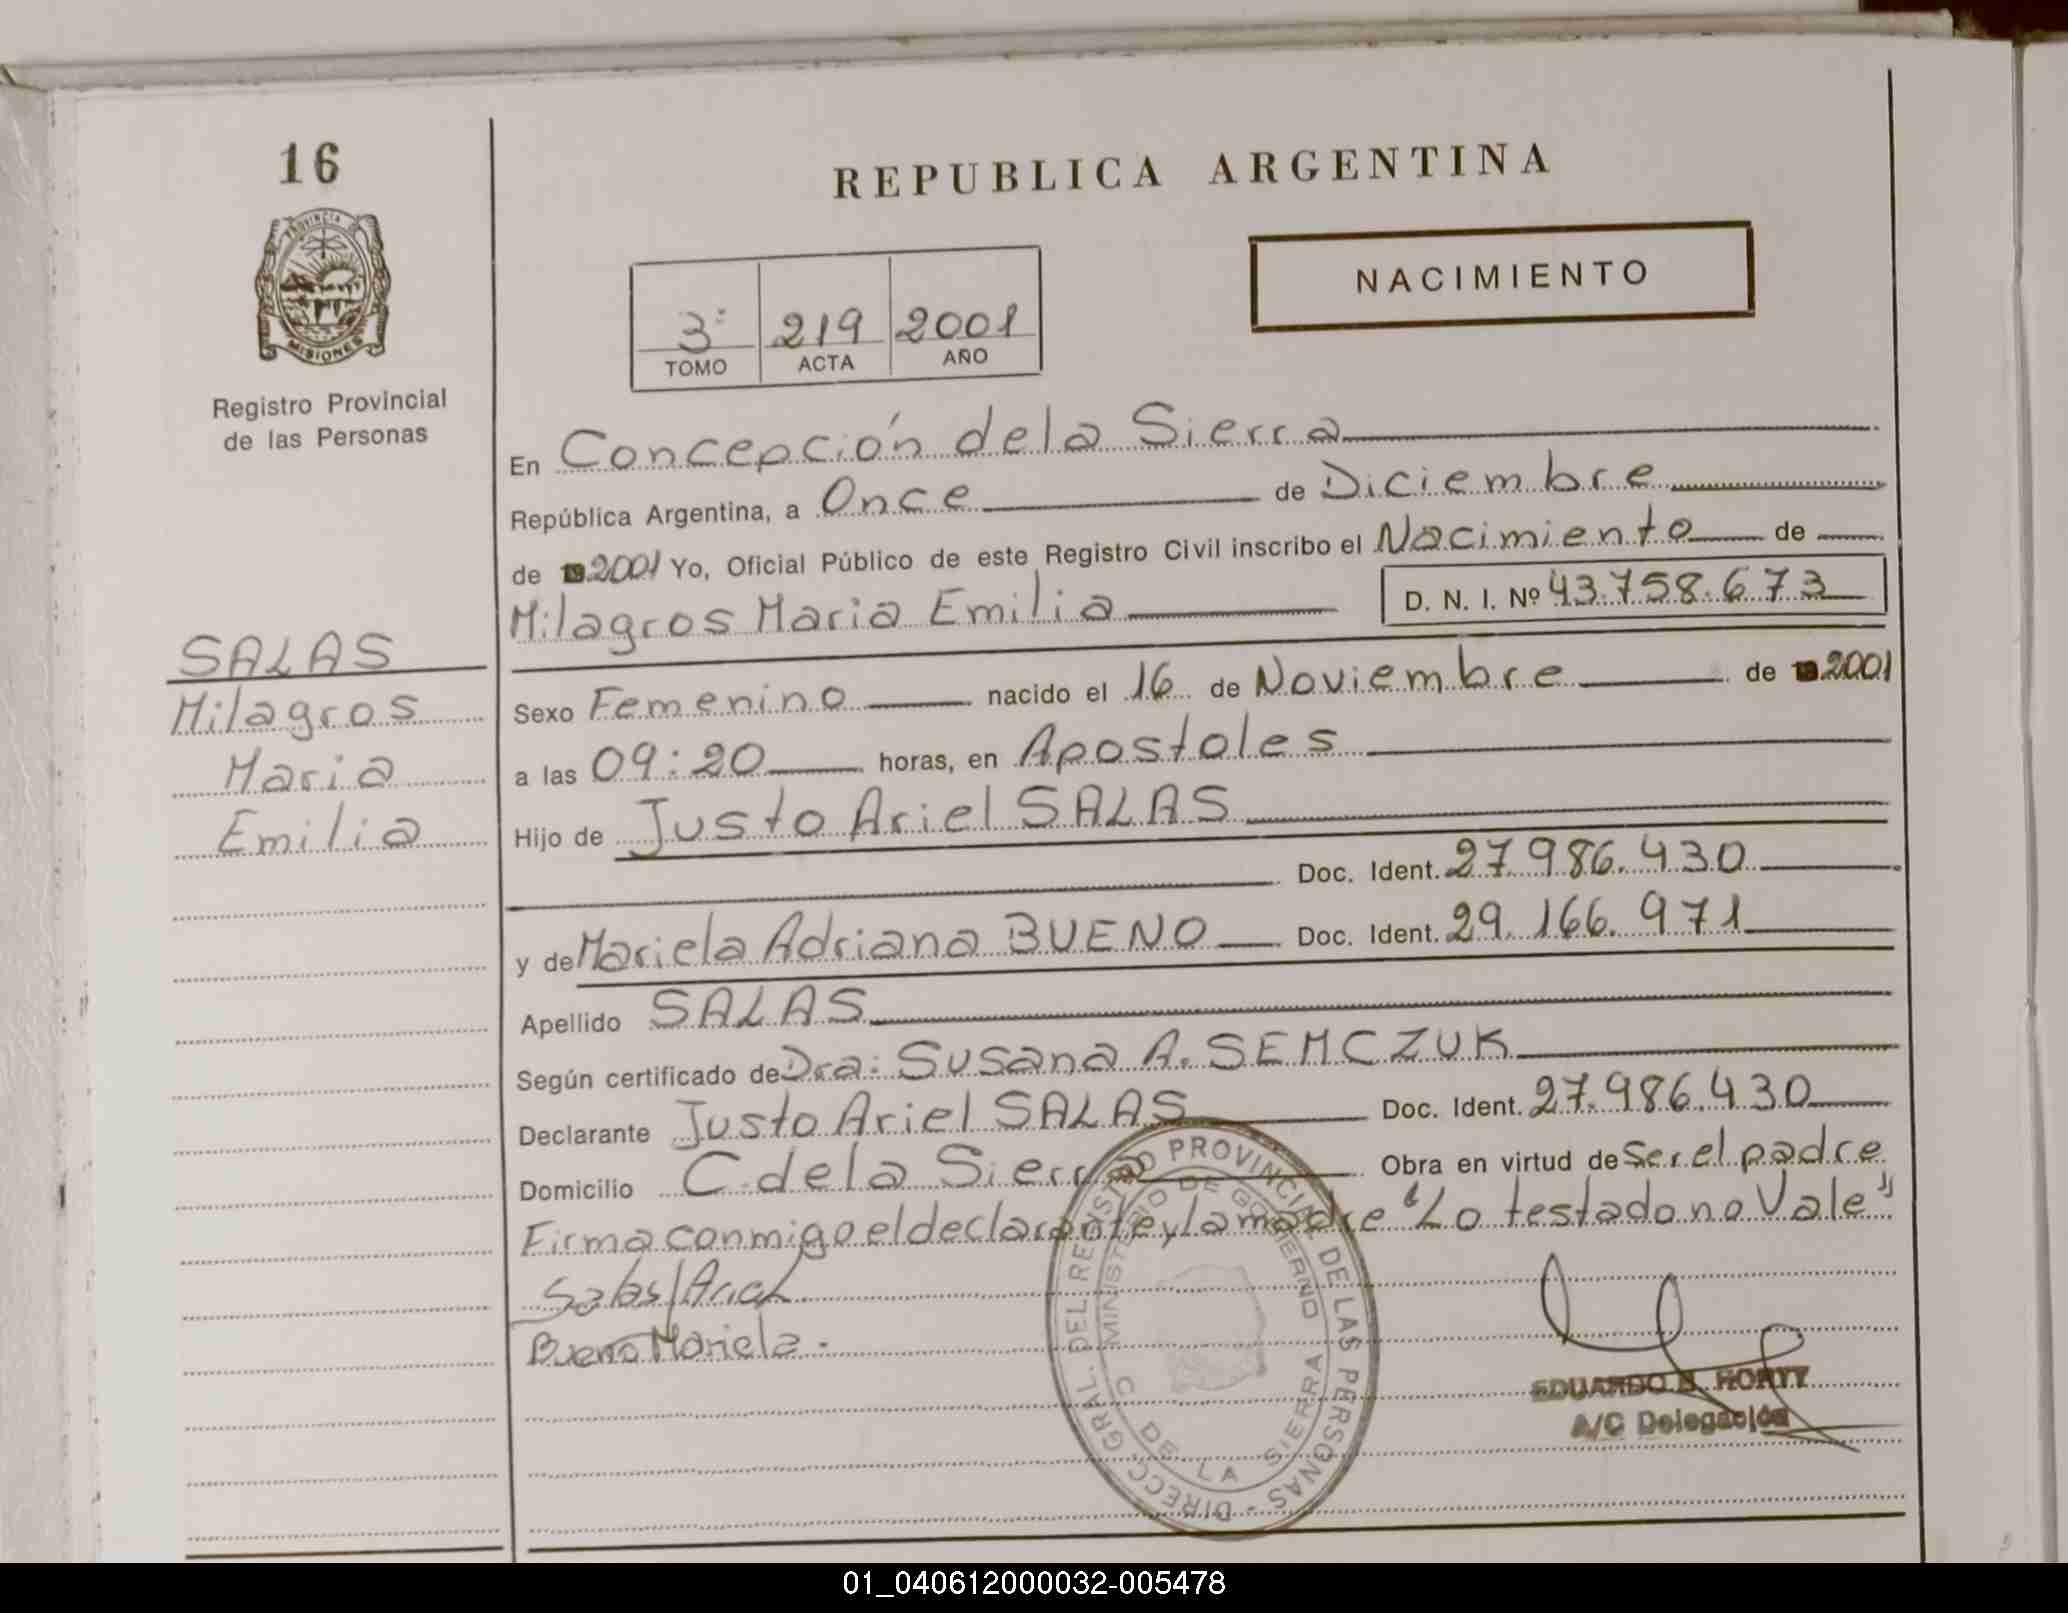 16
PROVINCIA
MISIONES
Registro Provincial
de las Personas
REPUBLICA ARGENTINA
NACIMIENTO
3º 219 2001
TOMO ACTA AÑO
En Concepción de la Sierra
República Argentina, a Once de Diciembre
de 19 2001 Yo, Oficial Público de este Registro Civil inscribo el Nacimiento de
Milagros Maria Emilia D. N. I. Nº 43.758.673
SALAS
Milagros
Maria
Emilia
Sexo Femenino nacido el 16 de Noviembre de 19 2001
a las 09:20 horas, en Apostoles
Hijo de Justo Ariel SALAS
Doc. Ident. 27.986.430
y de Mariela Adriana BUENO Doc. Ident. 29.166.971
Apellido SALAS
Según certificado de Dra: Susana A. SEMCZUK
Declarante Justo Ariel SALAS Doc. Ident. 27.986.430
Domicilio C. de la Sierra Obra en virtud de Ser el padre
Firma conmigo el declarante y la madre "Lo testado no Vale"
Salas Ariel
Bueno Mariela.
DIRECC. GRAL. DEL REGISTRO PROVINCIAL DE LAS PERSONAS -
MINISTERIO DE GOBIERNO
C. DE LA SIERRA
EDUARDO
A/C Delegación
01_040612000032-005478